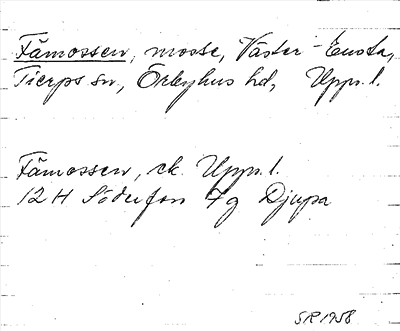 Fämossen, mosse, Väster-Ensta,
Tierps sn, Örbyhus hd, Upps. l.
Fämossen, ek. Upps. l.
12 H Söderfors 7g Djupa
SR 1958